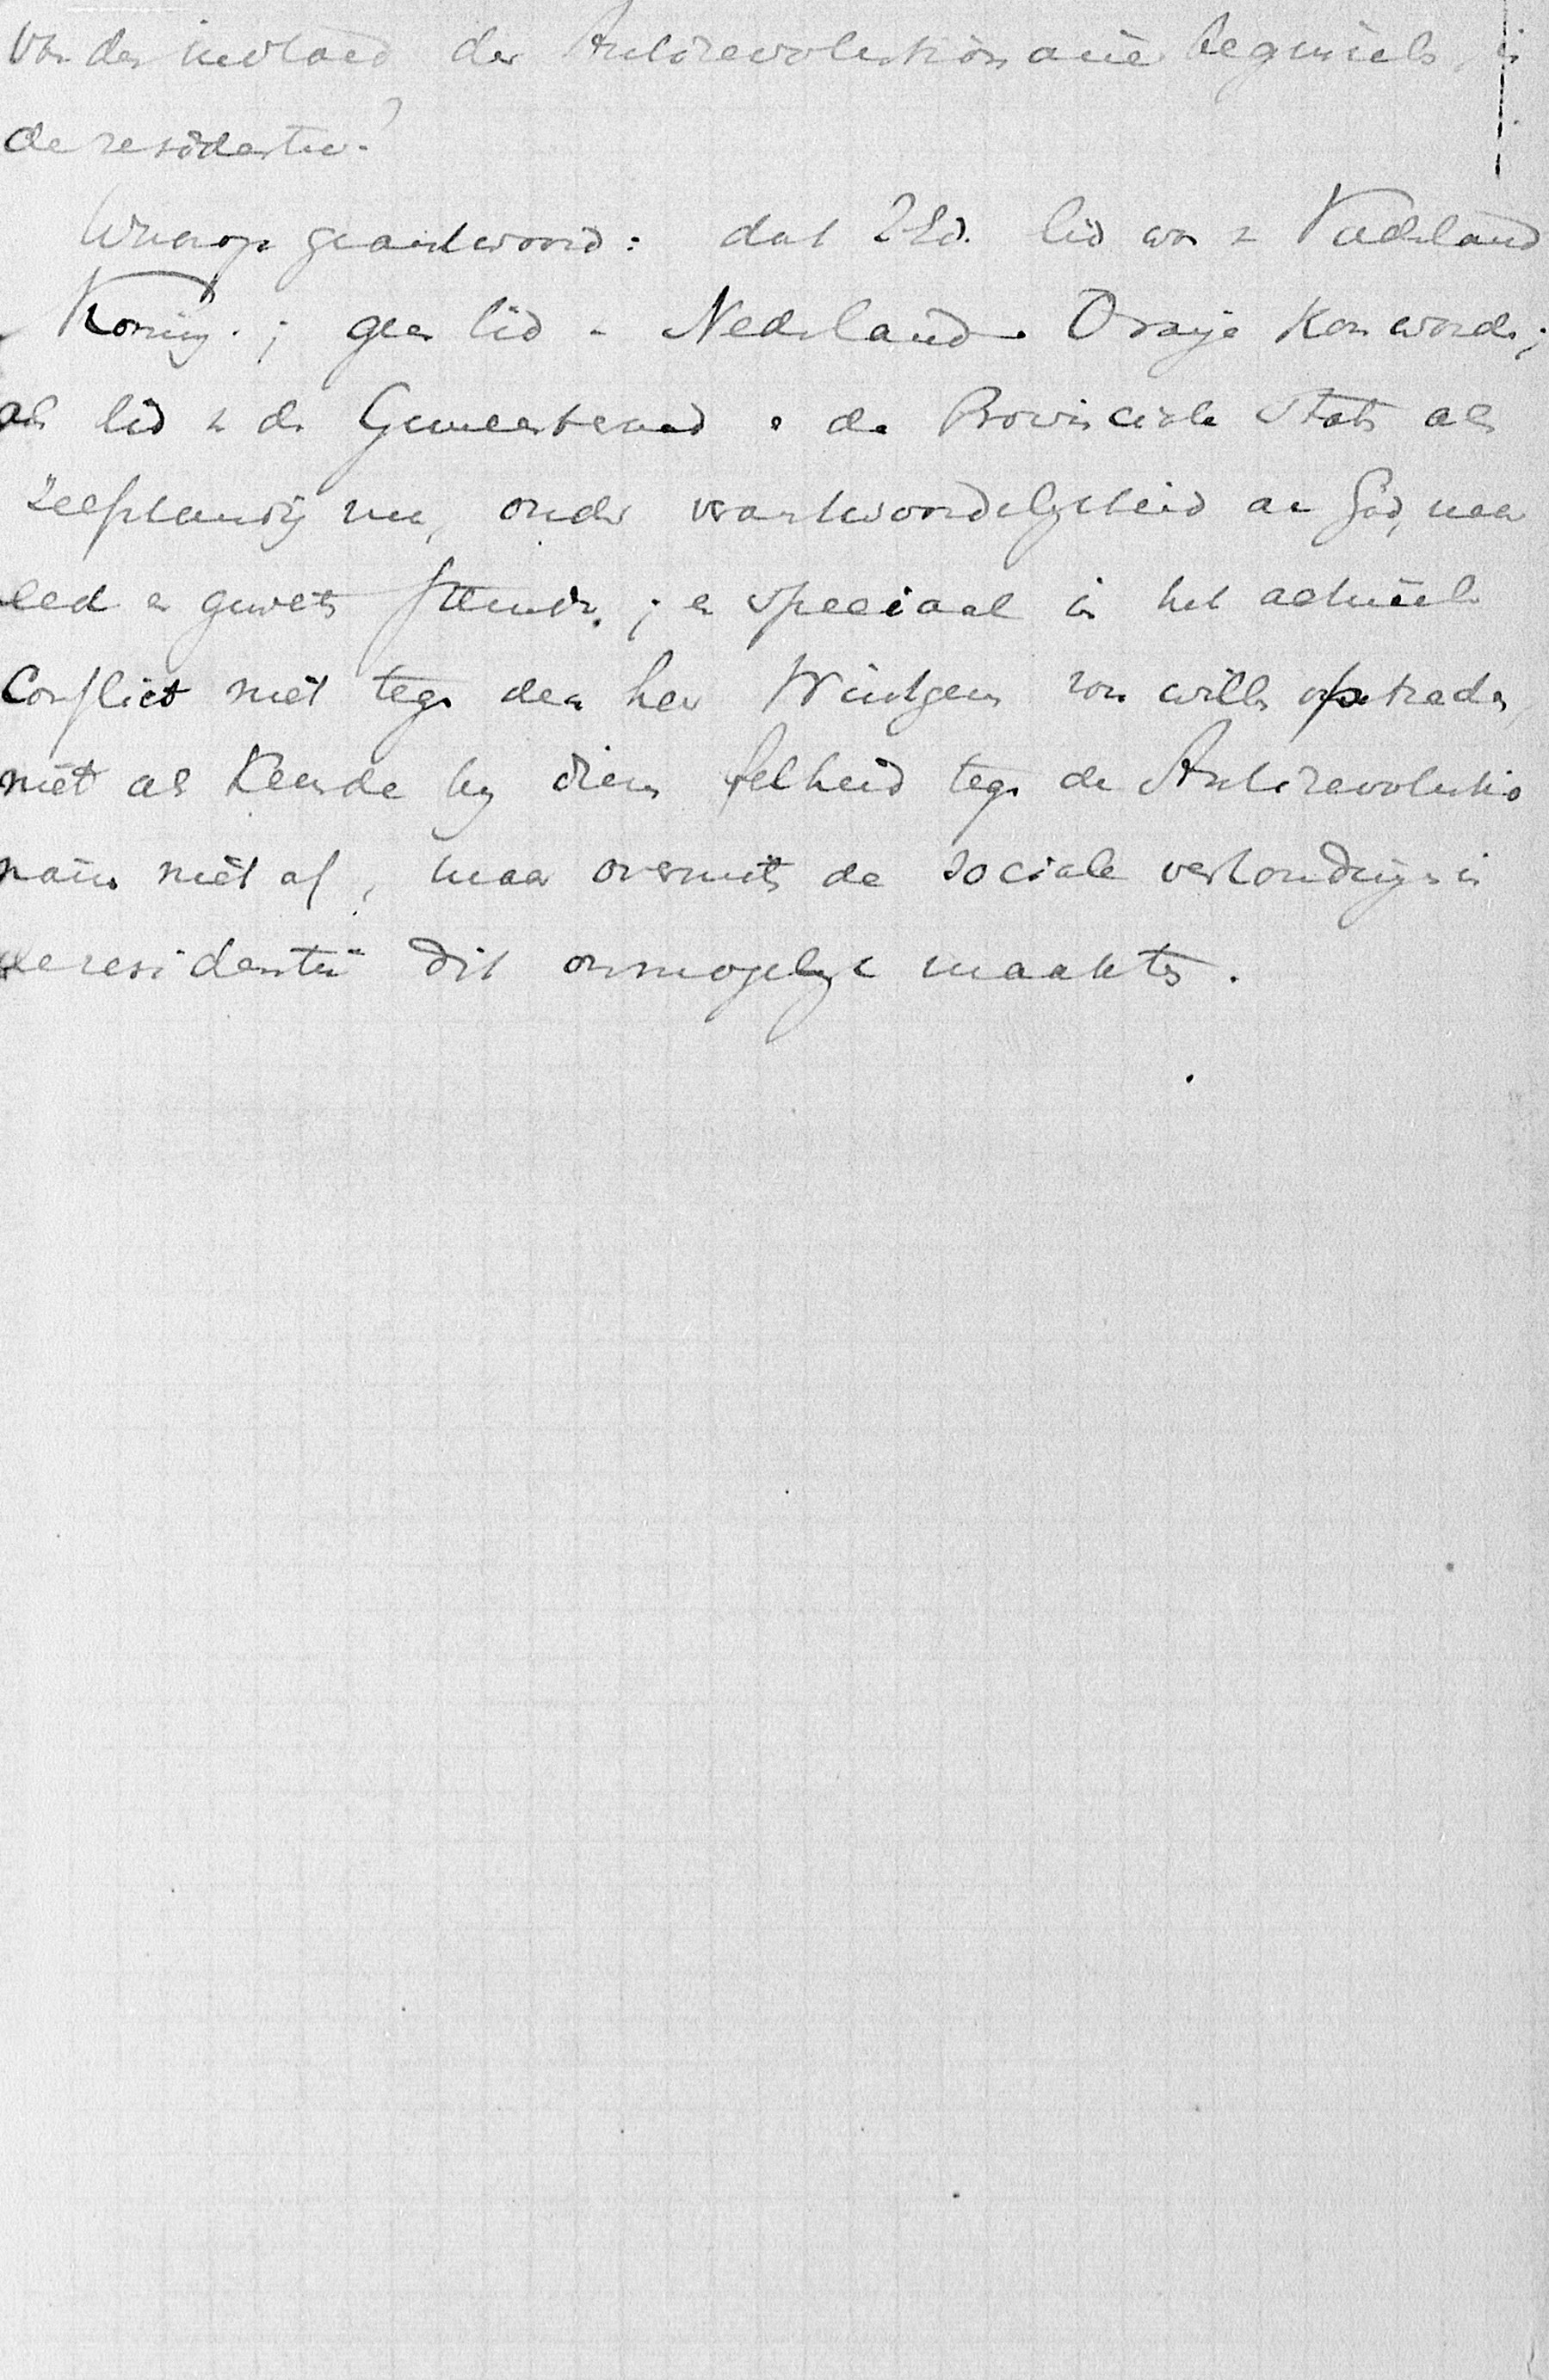 van den invloed der Antirevolutionaire beginsels in
de residentie?
Waarop geantwoord: dat ZEd. lid was v Vaderland
Koning; geen lid v Nederland Oranje kon worden;
als lid v de Gemeenteraad de Provinciale Staten als
zelfstandig man, onder verantwoordelijkheid aan God, naar
eed en geweten stemde; en speciaal in het actueele
Conflict niet tegen den heer Wintgens zou willen optreden,
niet als keurde hij diens felheid tegen de Antirevolutio
nairen niet af, maar overmits de sociale verhoudingen in
de residentie dit onmogelijk maakten.